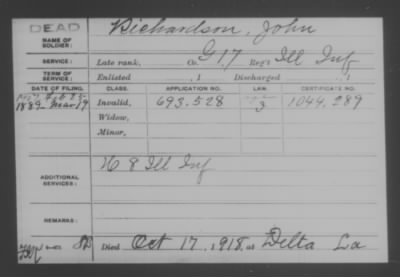 DEAD
NAME OF SOLDIER: Richardson, John
SERVICE: Late rank, Co. G 17 Reg't Ill Inf
TERM OF SERVICE: Enlisted , 1 Discharged , 1
DATE OF FILING. CLASS. APPLICATION NO. LAW. CERTIFICATE NO.
1889 Mar 19 Invalid, 693.528 3 1044.289
Widow,
Minor,
ADDITIONAL SERVICES: H 8 Ill Inf
REMARKS:
Died Oct 17, 1918, at Delta La